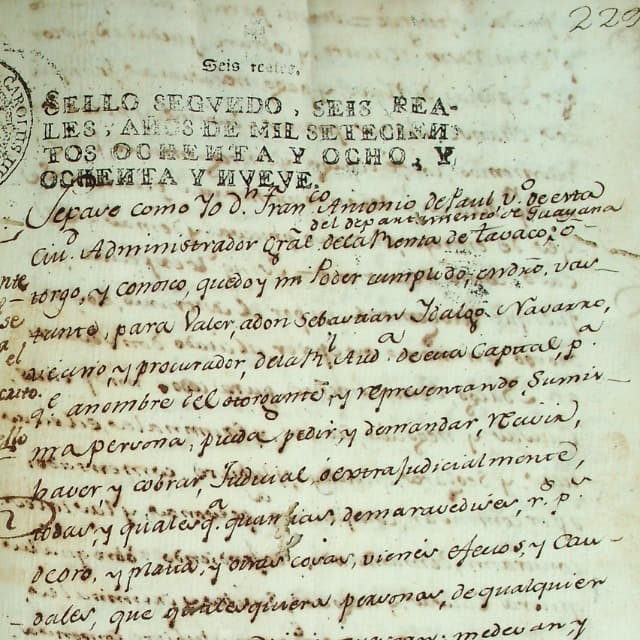 223
Seis reales.
CAROLUS III
SELLO SEGVNDO, SEIS REA-
LES, AÑOS DE MIL SETECIEN
TOS OCHENTA Y OCHO, Y
OCHENTA Y NUEVE.
Sepase como Yo Dn. Franco Antonio de Paul vo. de esta
del departamento de Guayana
Ciud Administrador gral de la Renta de tavaco, o-
torgo, y conosco, que doy mi Poder cumplido, en dro, vas-
tante, para Valer, a don Sebastian Idalgo Navarro,
vecino, y procurador, de la Rl Auda de esta Capital, pa
qe anombre del otorgante, y representando, Sumis-
ma persona, pueda pedir, y demandar, Recivir,
haver y cobrar, Judicial, o extrajudicialmente,
todas, y qualesqa quantias, demaravedises, rs ps
de oro, y plata, y otras cosas, vienes efectos, y Cau-
dales, que qualesquiera personas, de qualquier
nte
se
a
el
crito.